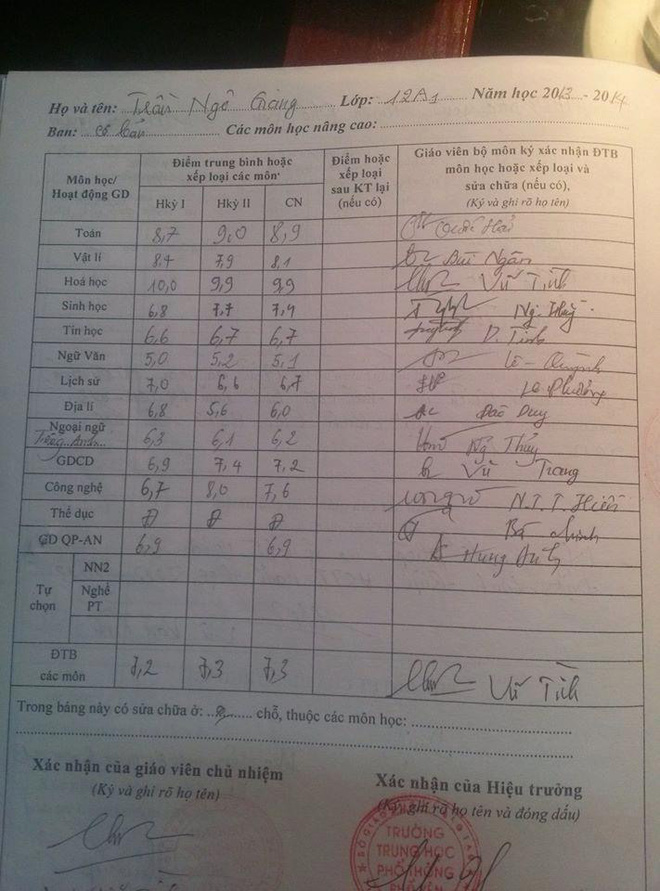 Họ và tên: Trần Ngô Giàng Lớp: 12A1 Năm học 2013 - 2014
Ban: cơ bản Các môn học nâng cao:
Môn học/ Hoạt động GD Điểm trung bình hoặc xếp loại các môn Điểm hoặc xếp loại sau KT lại (nếu có) Giáo viên bộ môn ký xác nhận ĐTB môn học hoặc xếp loại và sửa chữa (nếu có), (Ký và ghi rõ họ tên)
Hkỳ I Hkỳ II CN
Toán 8,7 9,0 8,9 Hải
Vật lí 8,4 7,9 8,1 Bùi Ngân
Hoá học 10,0 9,9 9,9 Vũ Tình
Sinh học 6,8 7,7 7,4 Ng. Thủy
Tin học 6,6 6,7 6,7 D. Tình
Ngữ Văn 5,0 5,2 5,1 Lê - Quỳnh
Lịch sử 7,0 6,6 6,7 Lê Phương
Địa lí 6,8 5,6 6,0 Đào Duy
Ngoại ngữ Tiếng Anh 6,3 6,1 6,2 Ng Thủy
GDCD 6,9 7,4 7,2 Vũ Trang
Công nghệ 6,7 8,0 7,6 N.T.T. Hiền
Thể dục Đ Đ Đ Bá Minh
GD QP-AN 6,9 6,9 Hùng Anh
Tự chọn NN2
Nghề PT
ĐTB các môn 7,2 7,3 7,3 Vũ Tình
Trong bảng này có sửa chữa ở: chỗ, thuộc các môn học:
Xác nhận của giáo viên chủ nhiệm
(Ký và ghi rõ họ tên)
Xác nhận của Hiệu trưởng
(Ký, ghi rõ họ tên và đóng dấu)
TRƯỜNG
TRUNG HỌC
PHỔ THÔNG